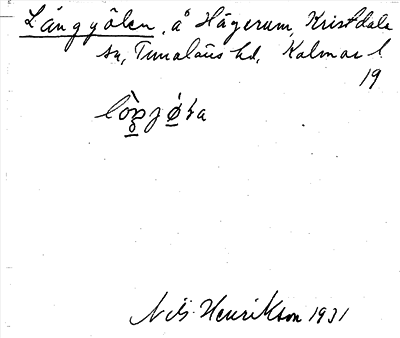 Långgölen, å Hägerum, Kristdala
sn, Tunaläns hd, Kalmar l.
19
Nils Henrikson 1931